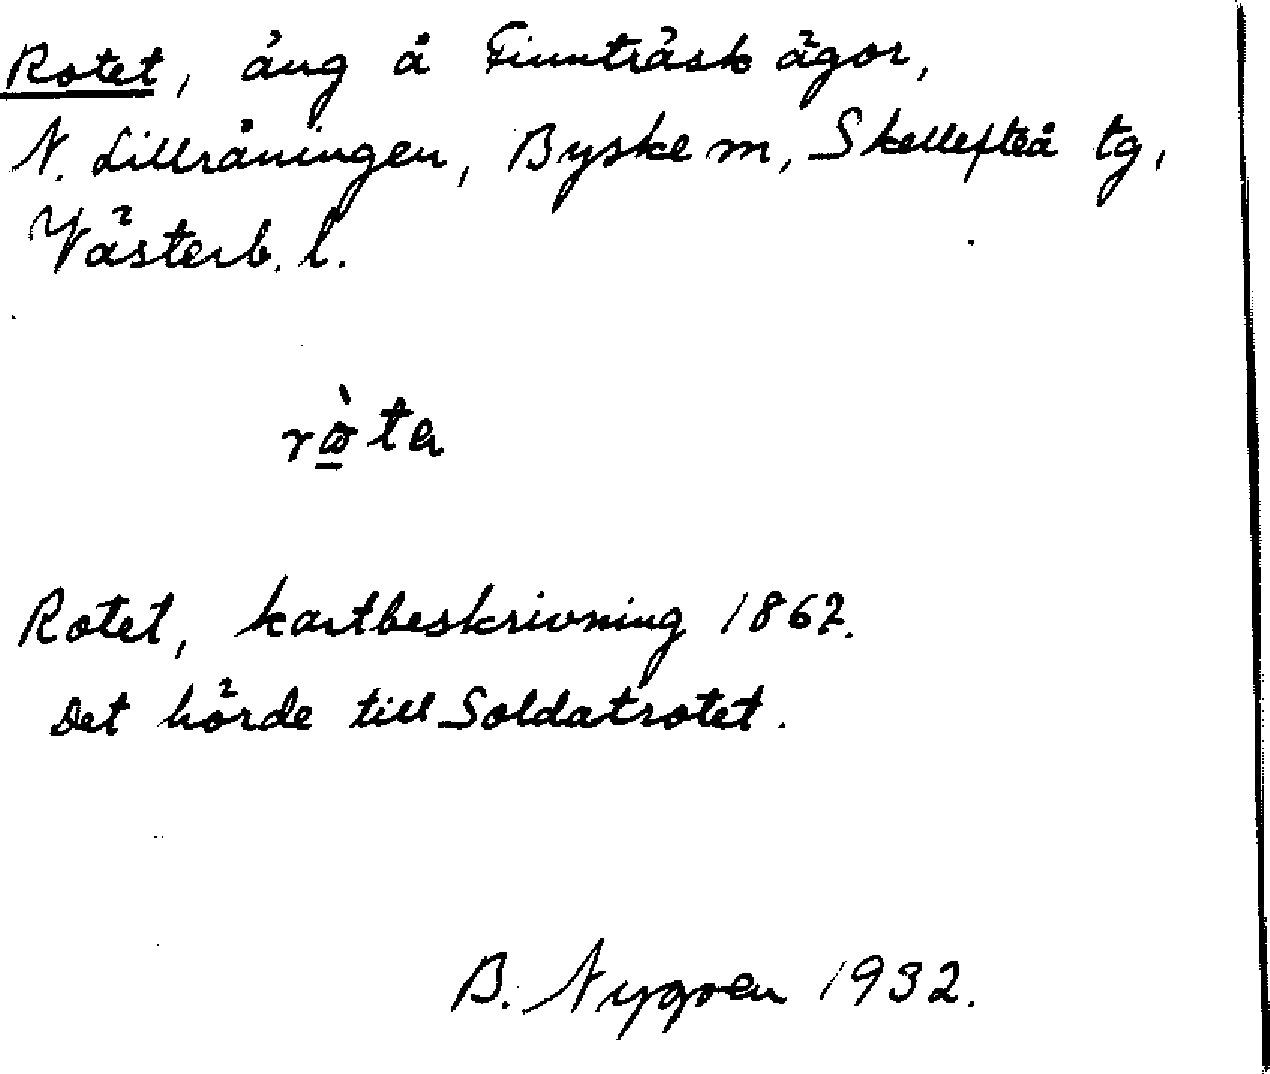 Rotet, äng å Finnträsk ägor,
N. Lillråningen, Byske sn, Skellefteå tg,
Västerb. l.
Rotet, kartbeskrivning 1862.
Det hörde till Soldatrotet.
B. Nygren 1932.